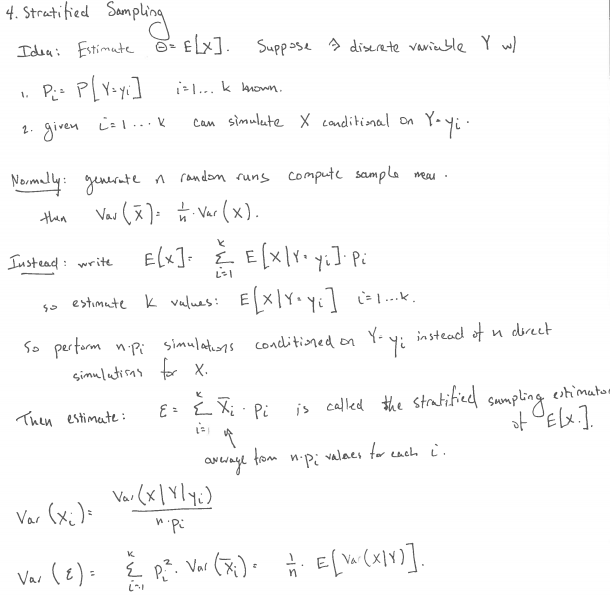 4. Stratified Sampling
Idea: Estimate Θ = E[X]. Suppose ∃ discrete variable Y w/
1. Pi = P[Y=yi] i=1...k known.
2. given i=1...k can simulate X conditional on Y=yi.
Normally: generate n random runs compute sample mean.
then Var(X̄) = 1/n · Var(X).
Instead: write E[X] = Σ_{i=1}^{k} E[X|Y=yi]·Pi
so estimate k values: E[X|Y=yi] i=1...k.
So perform n·pi simulations conditioned on Y=yi instead of n direct
simulations for X.
Then estimate: Ɛ = Σ_{i=1}^{k} X̄i · Pi is called the stratified sampling estimator
of E[X].
average from n·pi values for each i.
Var(xi) = Var(X|Y|yi) / n·pi
Var(Ɛ) = Σ_{i=1}^{k} Pi² · Var(X̄i) = 1/n · E[Var(X|Y)].